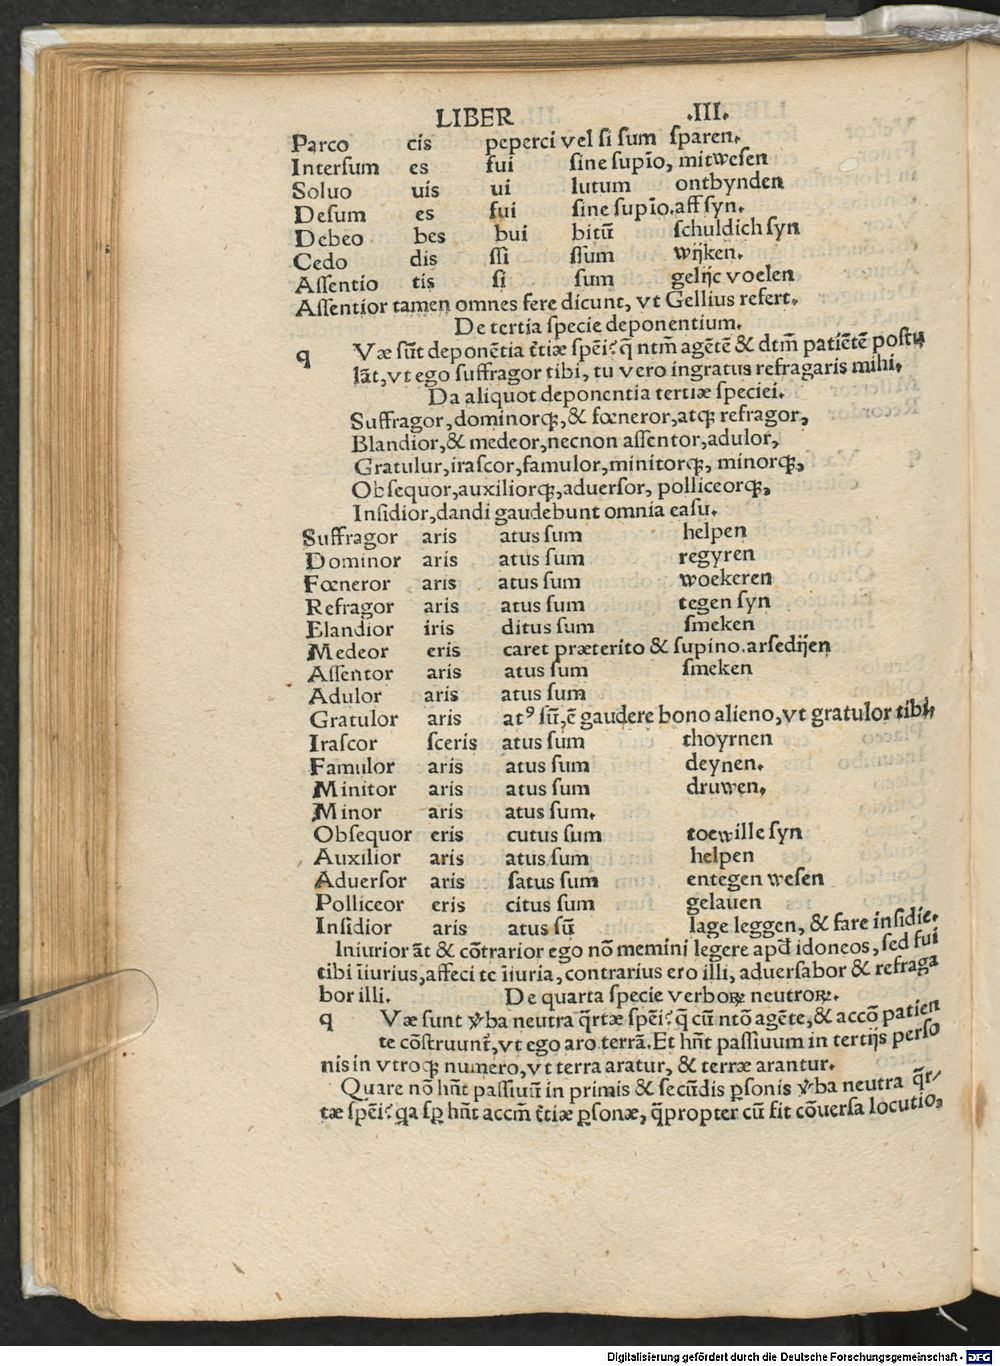 LIBER .III.
Parco cis peperci vel si sum sparen.
Intersum es fui sine supīo, mitwesen
Soluo uis ui lutum ontbynden
Desum es fui sine supīo. aff syn.
Debeo bes bui bitū schuldich syn
Cedo dis ssi ssum wijken.
Assentio tis si sum gelijc voelen
Assentior tamen omnes fere dicunt, vt Gellius refert.
De tertia specie deponentium.
q Væ sūt deponētia t̄tiæ spēi? q̄ ntm̄ agētē & dtm̄ patiētē postu
lāt, vt ego suffragor tibi, tu vero ingratus refragaris mihi.
Da aliquot deponentia tertiæ speciei.
Suffragor, dominorqꝫ, & fœneror, atqꝫ refragor,
Blandior, & medeor, necnon assentor, adulor,
Gratulur, irascor, famulor, minitorqꝫ, minorqꝫ,
Obsequor, auxiliorqꝫ, aduersor, polliceorqꝫ,
Insidior, dandi gaudebunt omnia casu.
Suffragor aris atus sum helpen
Dominor aris atus sum regyren
Fœneror aris atus sum woekeren
Refragor aris atus sum tegen syn
Elandior iris ditus sum smeken
Medeor eris caret præterito & supino. arsedijen
Assentor aris atus sum smeken
Adulor aris atus sum
Gratulor aris atꝰ sū, ē gaudere bono alieno, vt gratulor tibi,
Irascor sceris atus sum thoyrnen
Famulor aris atus sum deynen.
Minitor aris atus sum druwen.
Minor aris atus sum.
Obsequor eris cutus sum toewille syn
Auxilior aris atus sum helpen
Aduersor aris satus sum entegen wesen
Polliceor eris citus sum gelauen
Insidior aris atus sū lage leggen, & fare insidie.
Iniurior āt & cōtrarior ego nō memini legere apd̄ idoneos, sed fui
tibi īiurius, affeci te īiuria, contrarius ero illi, aduersabor & refraga
bor illi. De quarta specie verboꝝ neutroꝝ.
q Væ sunt v̄ba neutra q̄rtæ spēi? q̄ cū ntō agēte, & accō patien
te cōstruunt̄, vt ego aro terrā. Et hn̄t passiuum in tertijs perso
nis in vtroqꝫ numero, vt terra aratur, & terræ arantur.
Quare nō hn̄t passiuū in primis & secūdis ꝑsonis v̄ba neutra q̄r/
tæ spēi? qa sꝑ hn̄t accm̄ t̄tiæ ꝑsonæ, q̄propter cū fit cōuersa locutio,
Digitalisierung gefördert durch die Deutsche Forschungsgemeinschaft - DFG